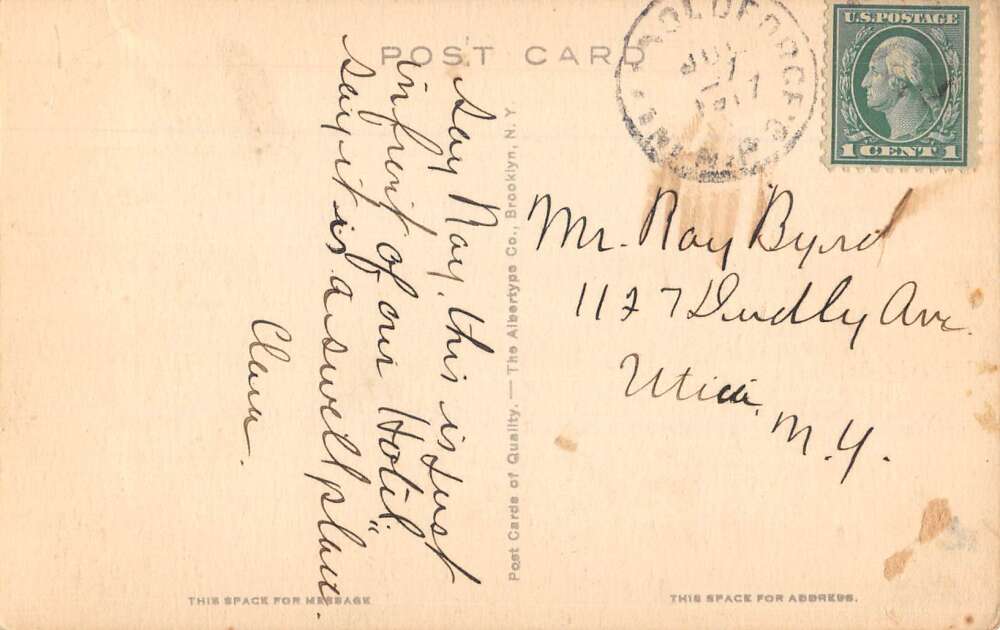 POST CARD
U.S. POSTAGE
1 CENT 1
Say Ray, this is just
in front of our Hotel."
say it is a swell place.
Clara.
Post Cards of Quality. — The Albertype Co., Brooklyn, N. Y.
Mr. Ray Byrd
1127 Dudley Ave.
Utica,
N. Y.
THIS SPACE FOR MESSAGE
THIS SPACE FOR ADDRESS.